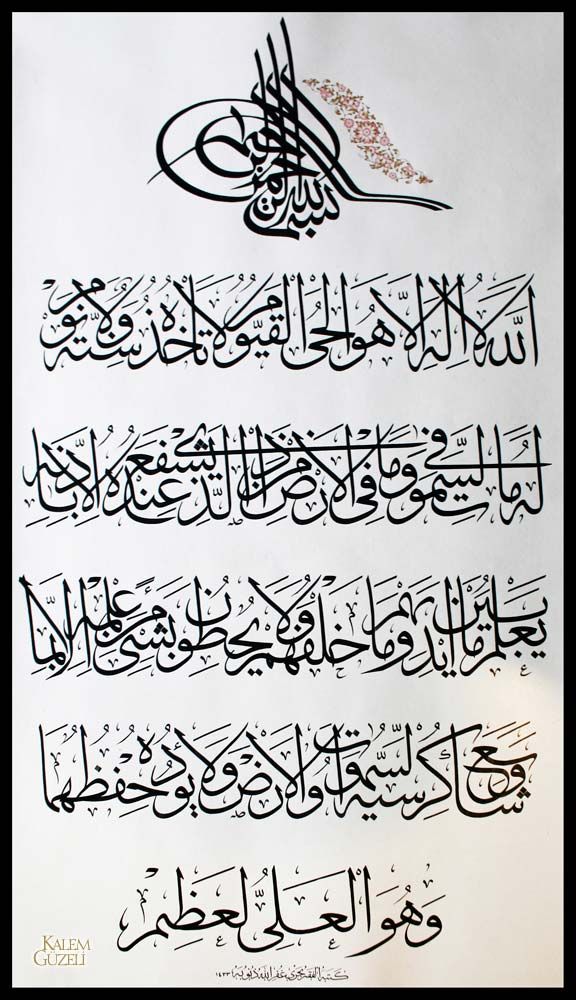 بسم الله الرحمن الرحيم
الله لا اله الا هو الحى القيوم لا تأخذه سنة ولا نوم
له ما فى السموت وما فى الارض من ذا الذى يشفع عنده الا باذنه
يعلم ما بين ايديهم وما خلفهم ولا يحيطون بشىء من علمه الا بما
شاء وسع كرسيه السموت والارض ولا يؤده حفظهما
وهو العلى العظيم
كتبه الفقير غفر الله ذنوبه ١٤٣٣
KALEM
GÜZELİ